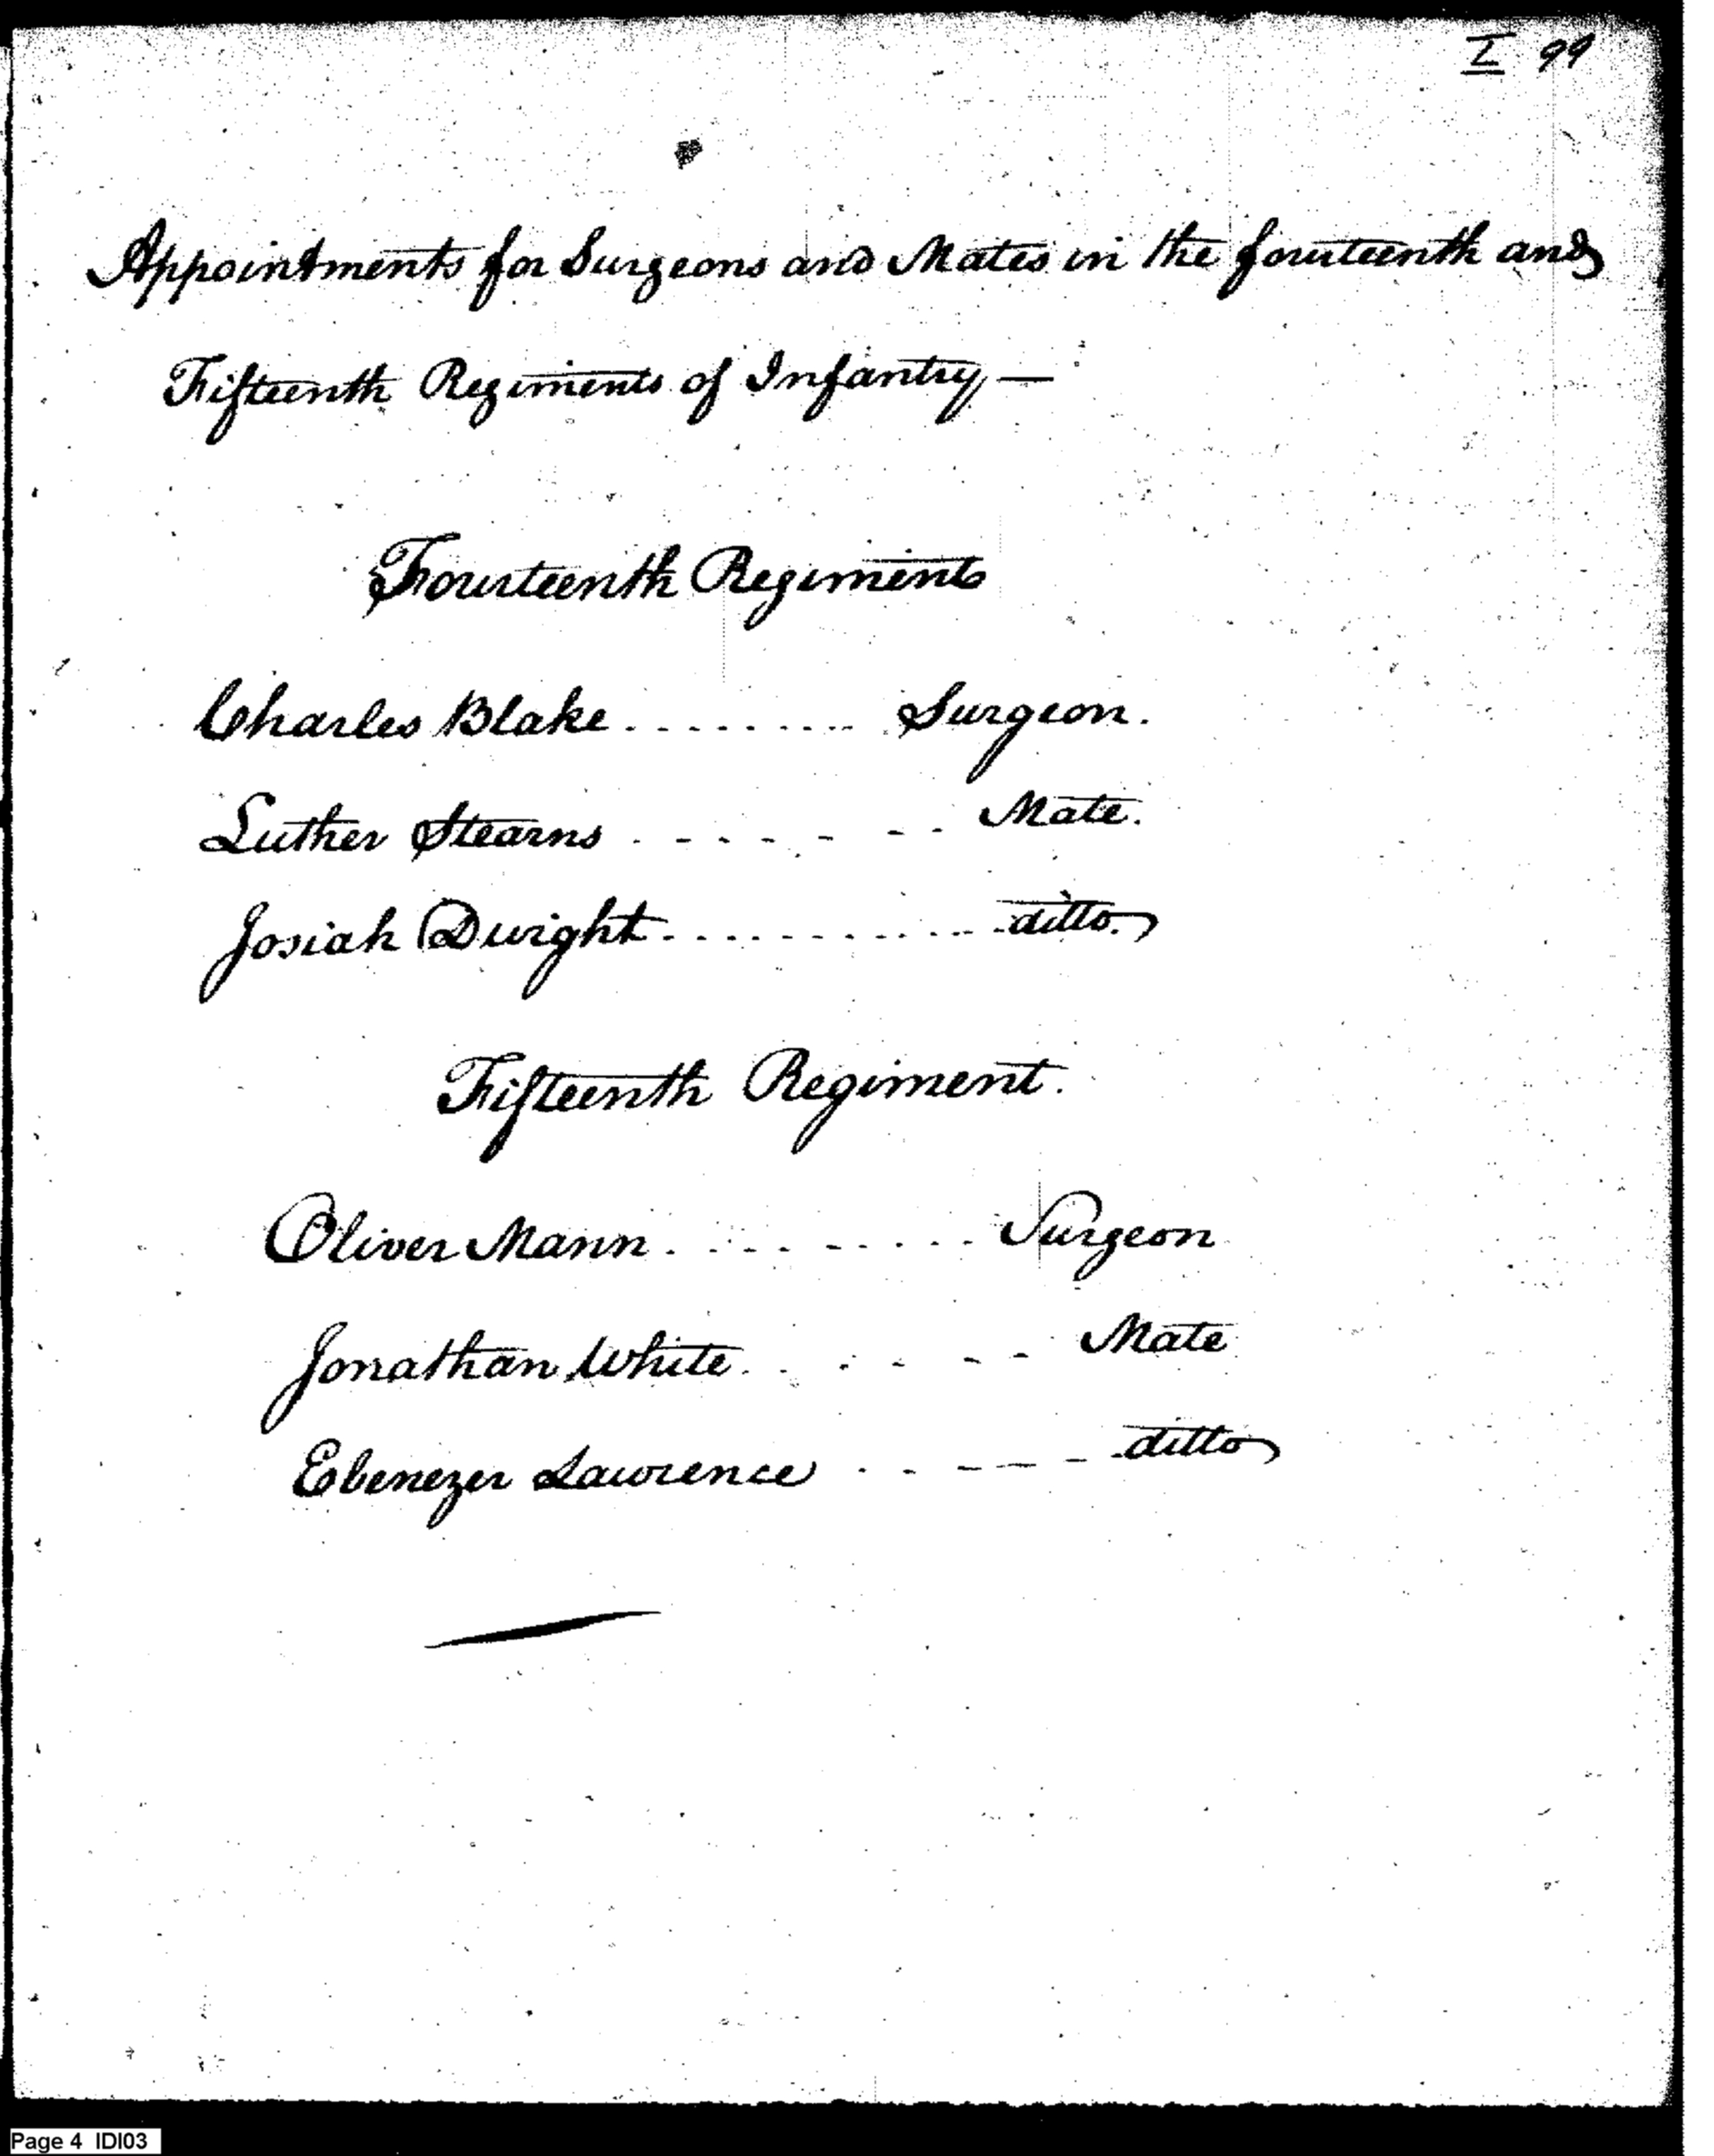 I 99
Appointments for Surgeons and Mates in the fourteenth and
Fifteenth Regiments of Infantry —
Fourteenth Regiment
Charles Blake . . . . . . . . . Surgeon.
Luther Stearns . - - - - - - - Mate.
Josiah Dwight . . . . . . . . . . . . ditto.
Fifteenth Regiment.
Oliver Mann . . . . . . . . . Surgeon
Jonathan White . . . - - - Mate
Ebenezer Lawrence . - - - - ditto
Page 4 IDI03